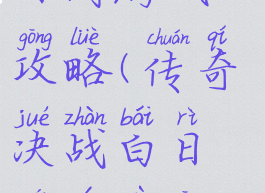 gōng lüè chuán qí
攻略(传奇
jué zhàn bái rì
决战白日